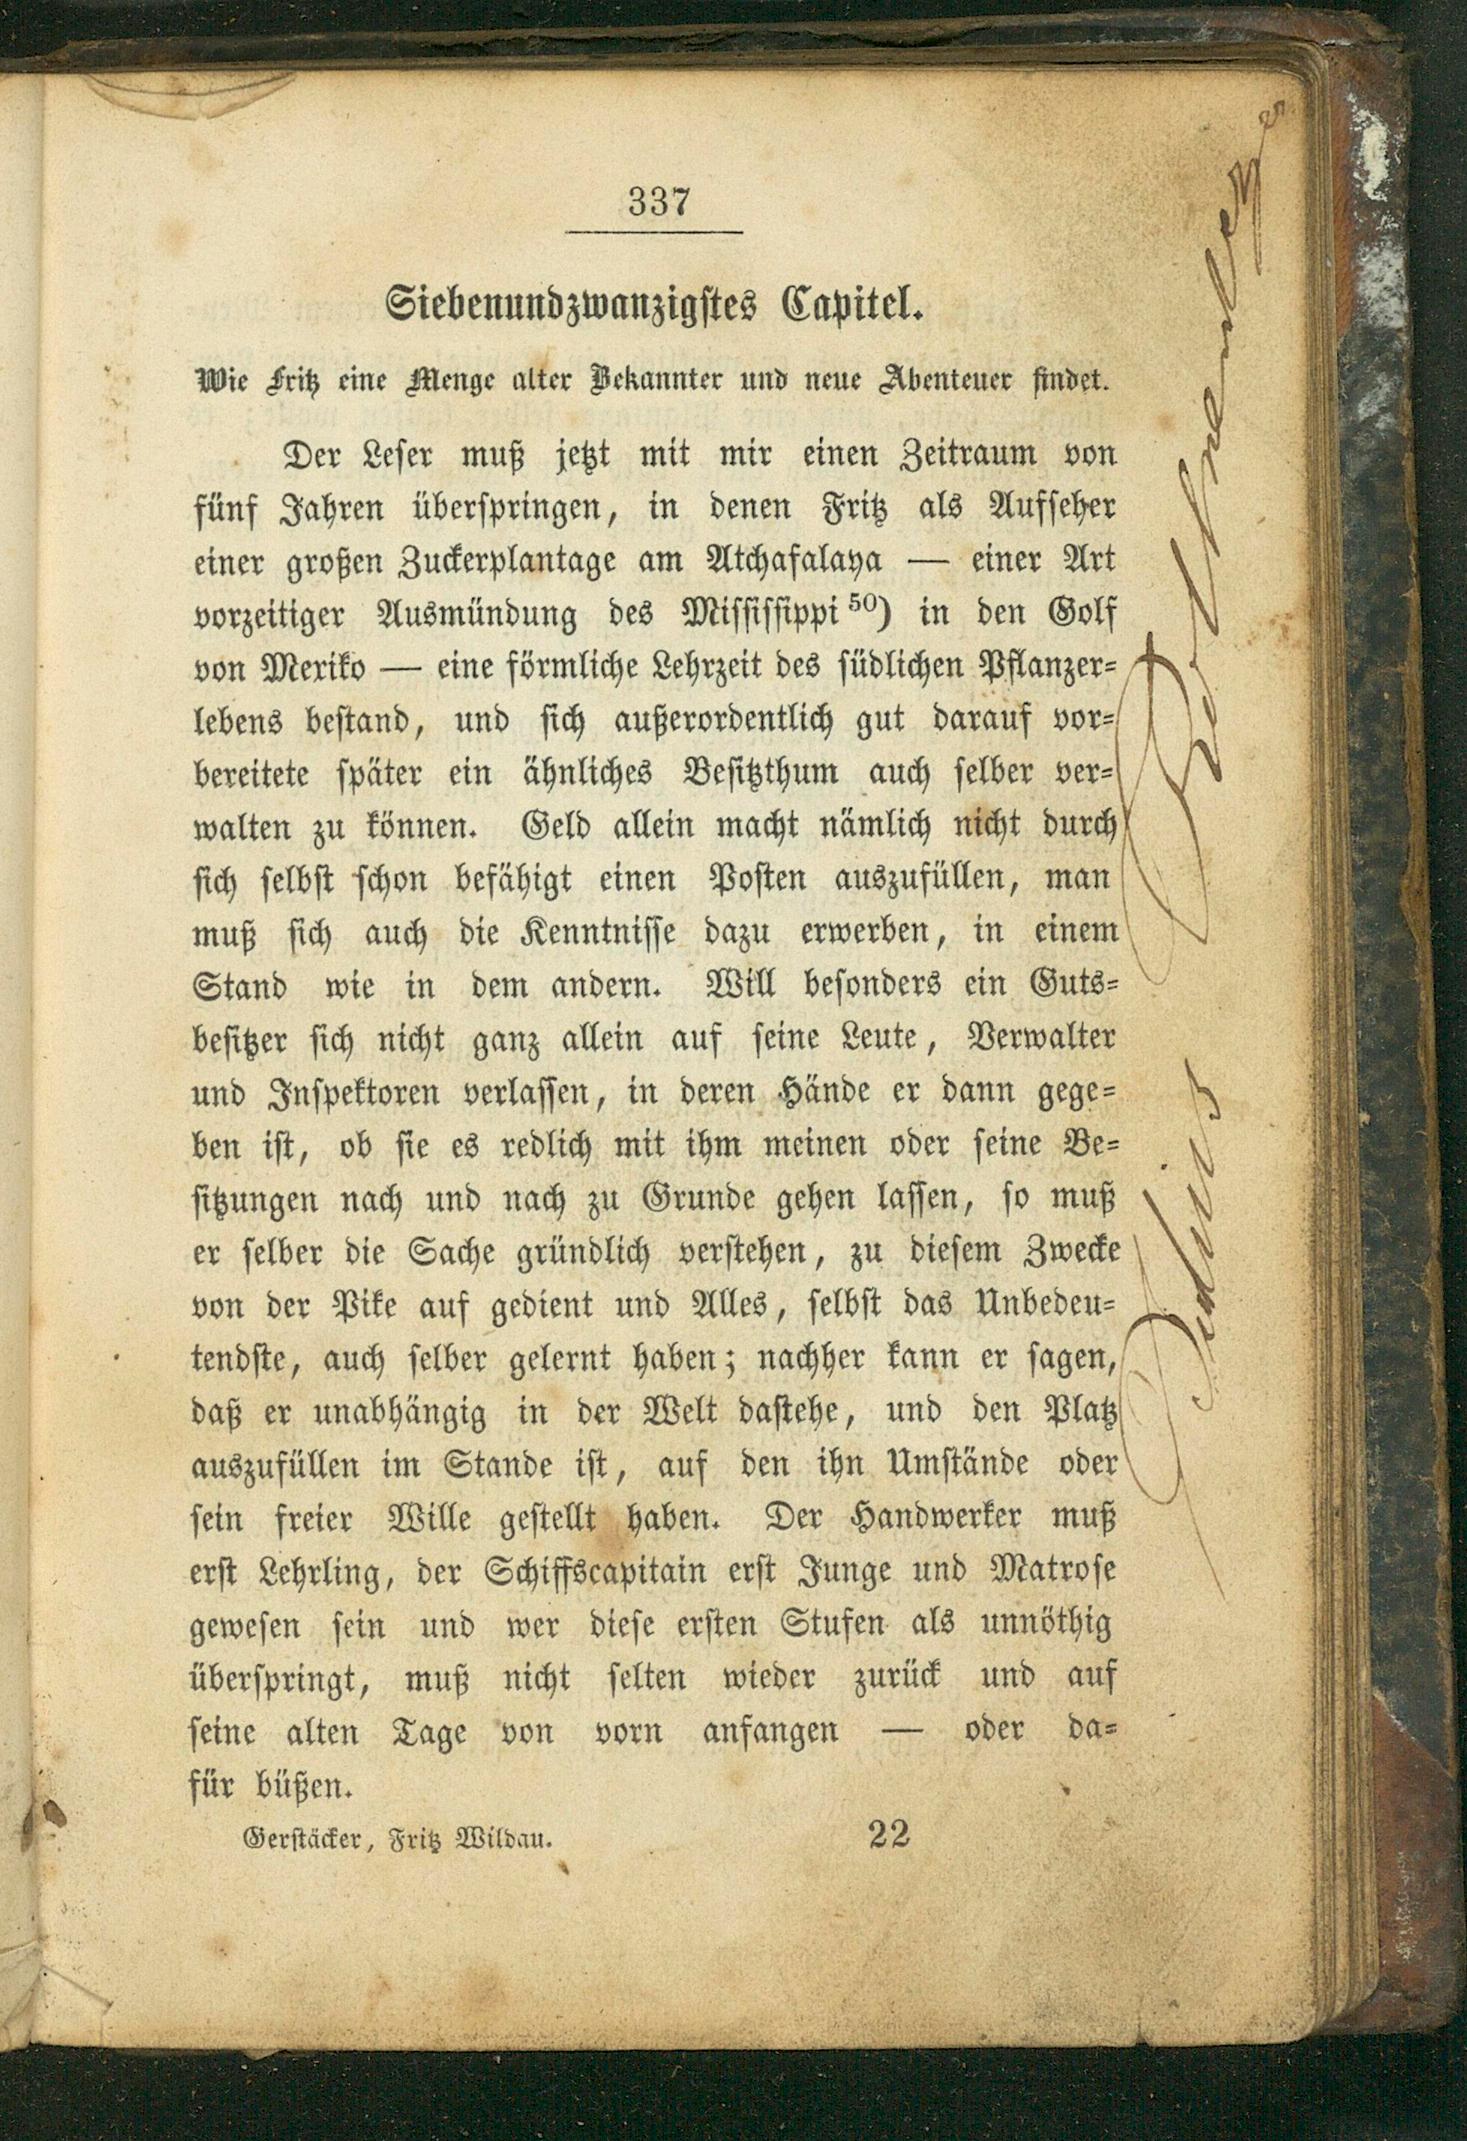 337
Siebenundzwanzigstes Capitel.
Wie Fritz eine Menge alter Bekannter und neue Abenteuer findet.
Der Leser muß jetzt mit mir einen Zeitraum von
fünf Jahren überspringen, in denen Fritz als Aufseher
einer großen Zuckerplantage am Atchafalaya — einer Art
vorzeitiger Ausmündung des Mississippi 50) in den Golf
von Mexiko — eine förmliche Lehrzeit des südlichen Pflanzer-
lebens bestand, und sich außerordentlich gut darauf vor-
bereitete später ein ähnliches Besitzthum auch selber ver-
walten zu können. Geld allein macht nämlich nicht durch
sich selbst schon befähigt einen Posten auszufüllen, man
muß sich auch die Kenntnisse dazu erwerben, in einem
Stand wie in dem andern. Will besonders ein Guts-
besitzer sich nicht ganz allein auf seine Leute, Verwalter
und Inspektoren verlassen, in deren Hände er dann gege-
ben ist, ob sie es redlich mit ihm meinen oder seine Be-
sitzungen nach und nach zu Grunde gehen lassen, so muß
er selber die Sache gründlich verstehen, zu diesem Zwecke
von der Pike auf gedient und Alles, selbst das Unbedeu-
tendste, auch selber gelernt haben; nachher kann er sagen,
daß er unabhängig in der Welt dastehe, und den Platz
auszufüllen im Stande ist, auf den ihn Umstände oder
sein freier Wille gestellt haben. Der Handwerker muß
erst Lehrling, der Schiffscapitain erst Junge und Matrose
gewesen sein und wer diese ersten Stufen als unnöthig
überspringt, muß nicht selten wieder zurück und auf
seine alten Tage von vorn anfangen — oder da-
für büßen.
Gerstäcker, Fritz Wildau. 22